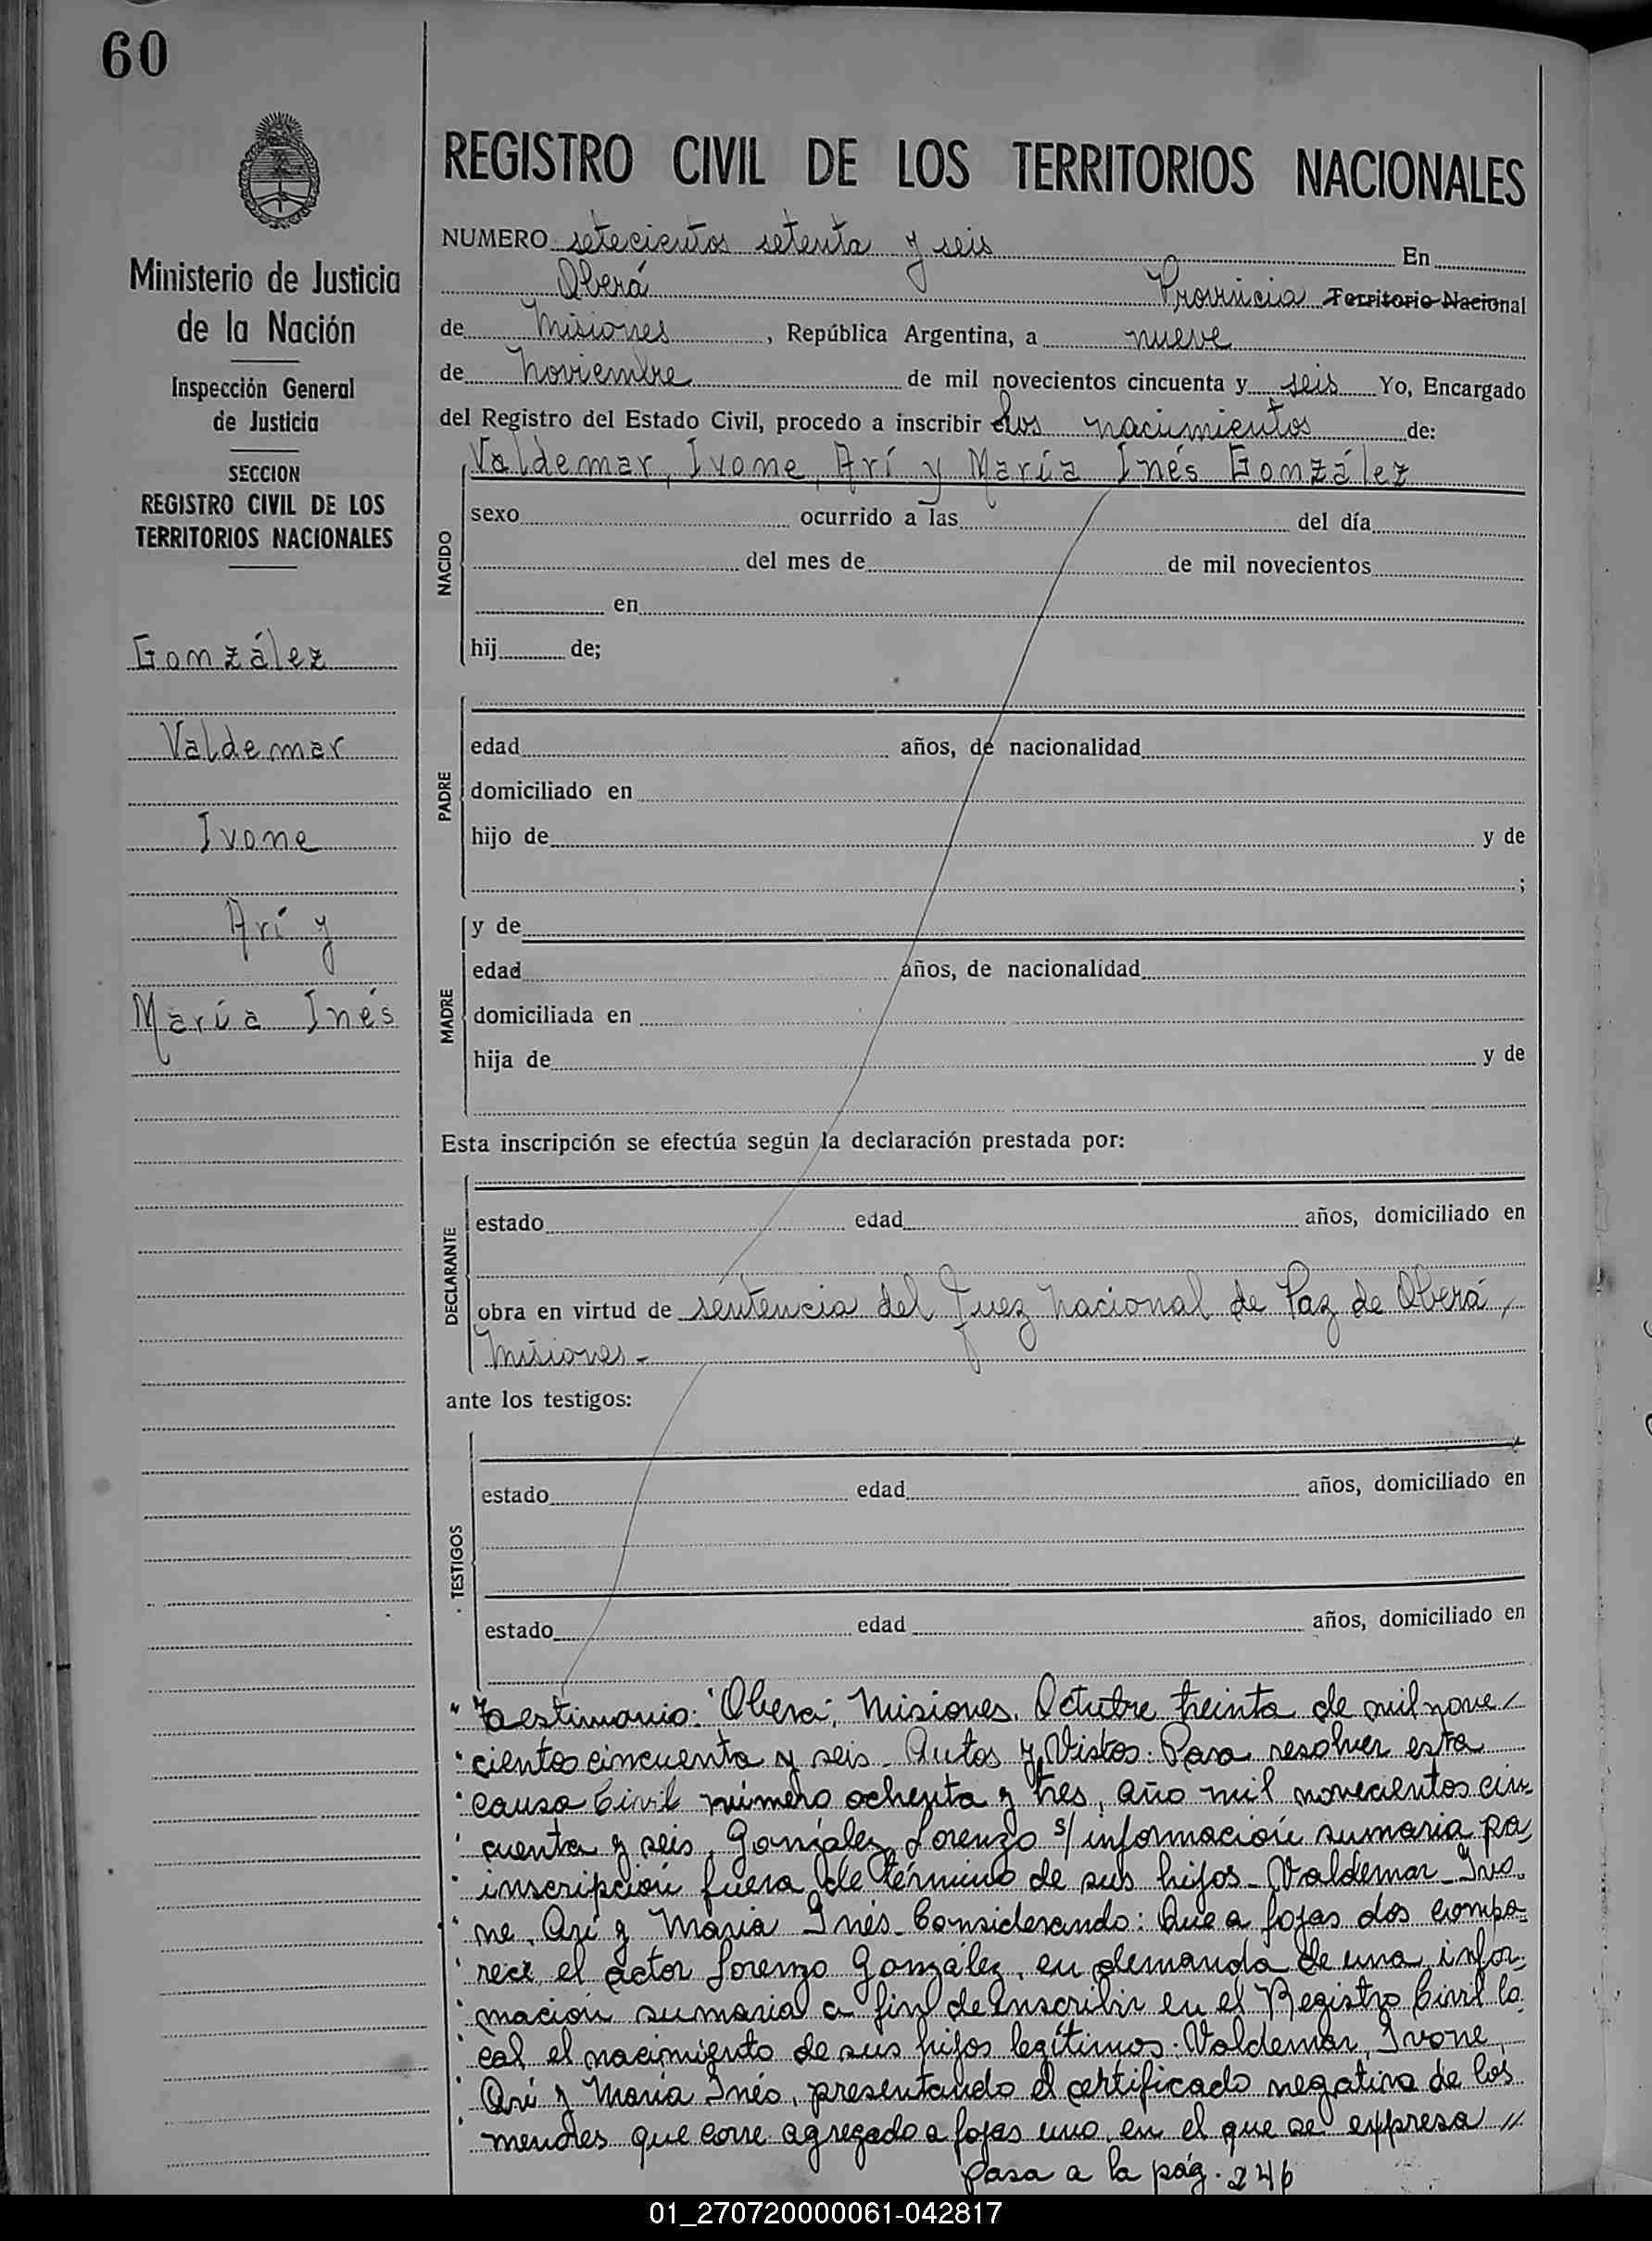 60
Ministerio de Justicia
de la Nación
Inspección General
de Justicia
SECCION
REGISTRO CIVIL DE LOS
TERRITORIOS NACIONALES
González
Valdemar
Ivone
Arí y
María Inés
REGISTRO CIVIL DE LOS TERRITORIOS NACIONALES
NUMERO setecientos setenta y seis En
Oberá Provincia Territorio Nacional
de Misiones, República Argentina, a nueve
de Noviembre de mil novecientos cincuenta y seis Yo, Encargado
del Registro del Estado Civil, procedo a inscribir los nacimientos de:
NACIDO
Valdemar, Ivone, Arí y María Inés González
sexo ocurrido a las del día
del mes de de mil novecientos
en
hij de;
PADRE
edad años, de nacionalidad
domiciliado en
hijo de y de
;
MADRE
y de
edad años, de nacionalidad
domiciliada en
hija de y de
Esta inscripción se efectúa según la declaración prestada por:
DECLARANTE
estado edad años, domiciliado en
obra en virtud de sentencia del Juez Nacional de Paz de Oberá,
Misiones.-
ante los testigos:
TESTIGOS
estado edad años, domiciliado en
estado edad años, domiciliado en
" Testimonio: "Oberá, Misiones, Octubre treinta de mil nove/
" cientos cincuenta y seis. Autos y Vistos: Para resolver esta
" causa Civil número ochenta y tres, año mil novecientos cin-
" cuenta y seis, González Lorenzo s/ información sumaria pa
" inscripción fuera de término de sus hijos - Valdemar - Ivo-
" ne, Arí y María Inés - Considerando: Que a fojas dos compa-
" rece el actor Lorenzo González, en demanda de una infor-
" mación sumaria a fin de inscribir en el Registro Civil lo-
" cal el nacimiento de sus hijos legítimos: Valdemar, Ivone,
" Arí y María Inés, presentando el certificado negativo de los
" menores que corre agregado a fojas uno, en el que se expresa //
Pasa a la pág. 246
01_270720000061-042817